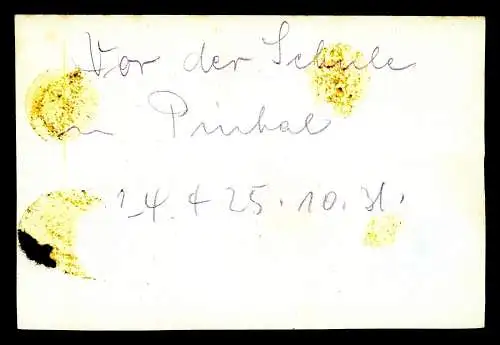 Vor der Schule
in Pinhal
24. + 25. 10. 31.